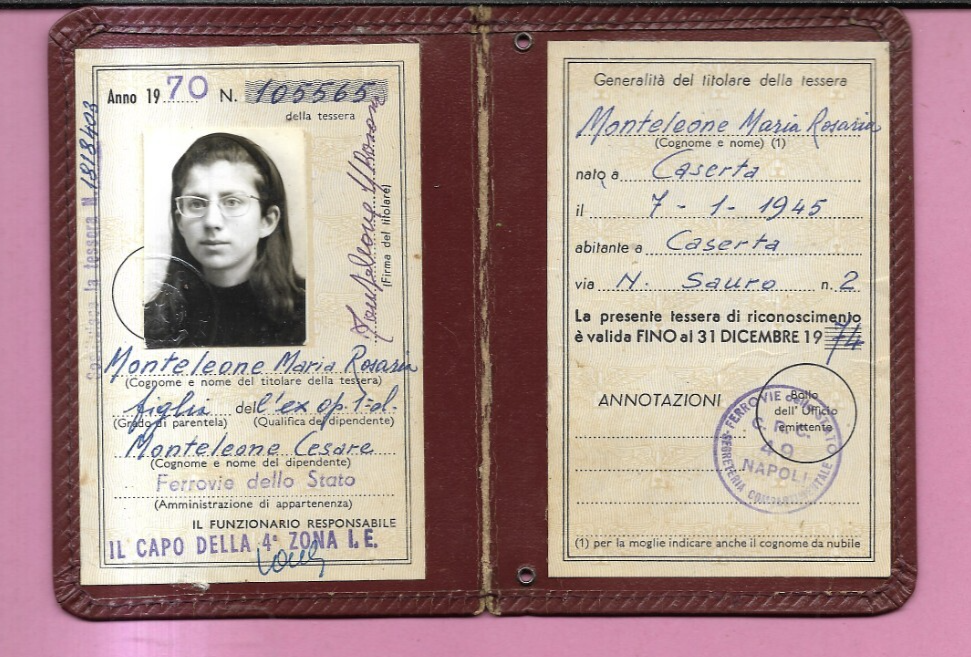 Anno 1970 N. 105565
della tessera
Sostituisce la tessera N. 1818403
(Firma del titolare)
Monteleone Maria Rosaria
(Cognome e nome del titolare della tessera)
figlia dell'ex op. 1ª cl.
(Grado di parentela) (Qualifica del dipendente)
Monteleone Cesare
(Cognome e nome del dipendente)
Ferrovie dello Stato
(Amministrazione di appartenenza)
IL FUNZIONARIO RESPONSABILE
IL CAPO DELLA 4ª ZONA I.E.
Generalità del titolare della tessera
Monteleone Maria Rosaria
(Cognome e nome) (1)
nato a Caserta
il 7-1-1945
abitante a Caserta
via N. Sauro n. 2
La presente tessera di riconoscimento
è valida FINO al 31 DICEMBRE 1974
ANNOTAZIONI
Bollo
dell'Ufficio
emittente
FERROVIE dello STATO
49
NAPOLI
SEGRETERIA COMPARTIMENTALE
(1) per la moglie indicare anche il cognome da nubile